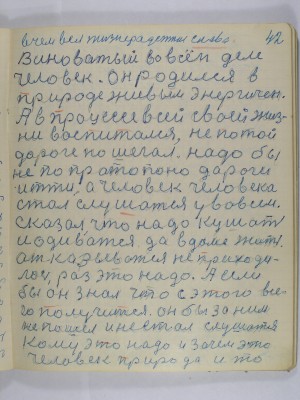 в чем вся жизнерадостная слава. 42
Виноватый во всём деле
человек. Он родился в
природе живым энергичен.
А в процессе всей своей жиз-
ни воспитался, не по той
дороге пошегал. надо бы
не по протопоно дароги
итти, а человек человека
стал слушатья у во всем.
Сказал что надо кушать
и одиватся да в доме жить.
откадыватся не приходи-
лось, раз это надо. А если
бы он знал что с этого все-
го получится. он бы за ним
не пошел и не стал слушатся
кому это надо и зачем это
человек природа и то